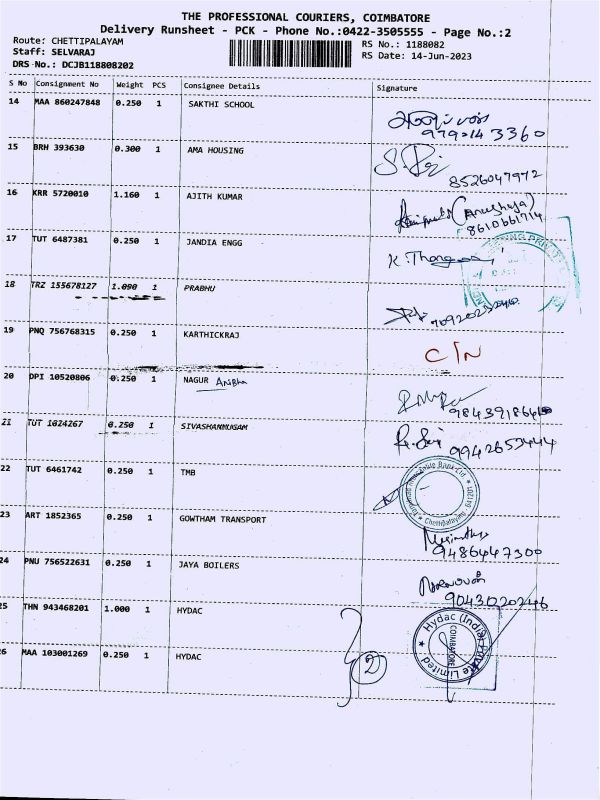 THE PROFESSIONAL COURIERS, COIMBATORE
Delivery Runsheet - PCK - Phone No.:0422-3505555 - Page No.:2
Route: CHETTIPALAYAM RS No.: 1188082
Staff: SELVARAJ RS Date: 14-Jun-2023
DRS No.: DCJB118808202
S No Consignment No Weight PCS Consignee Details Signature
14 MAA 860247848 0.250 1 SAKTHI SCHOOL
15 BRH 393630 0.300 1 AMA HOUSING
8526047972
16 KRR 5720010 1.160 1 AJITH KUMAR
(Anushuya)
8610661714
17 TUT 6487381 0.250 1 JANDIA ENGG
18 TRZ 155678127 1.090 1 PRABHU
19 PNQ 756768315 0.250 1 KARTHICKRAJ
C/N
20 DPI 10520806 0.250 1 NAGUR
21 TUT 1024267 0.250 1 SIVASHANMUGAM
9942653444
22 TUT 6461742 0.250 1 TMB
Tamilnad Mercantile Bank Ltd
Chettipalayam
23 ART 1852365 0.250 1 GOWTHAM TRANSPORT
9486447300
24 PNU 756522631 0.250 1 JAYA BOILERS
9043020246
25 THN 943468201 1.000 1 HYDAC
Hydac (India) Private Limited
COIMBATORE
26 MAA 103001269 0.250 1 HYDAC
2